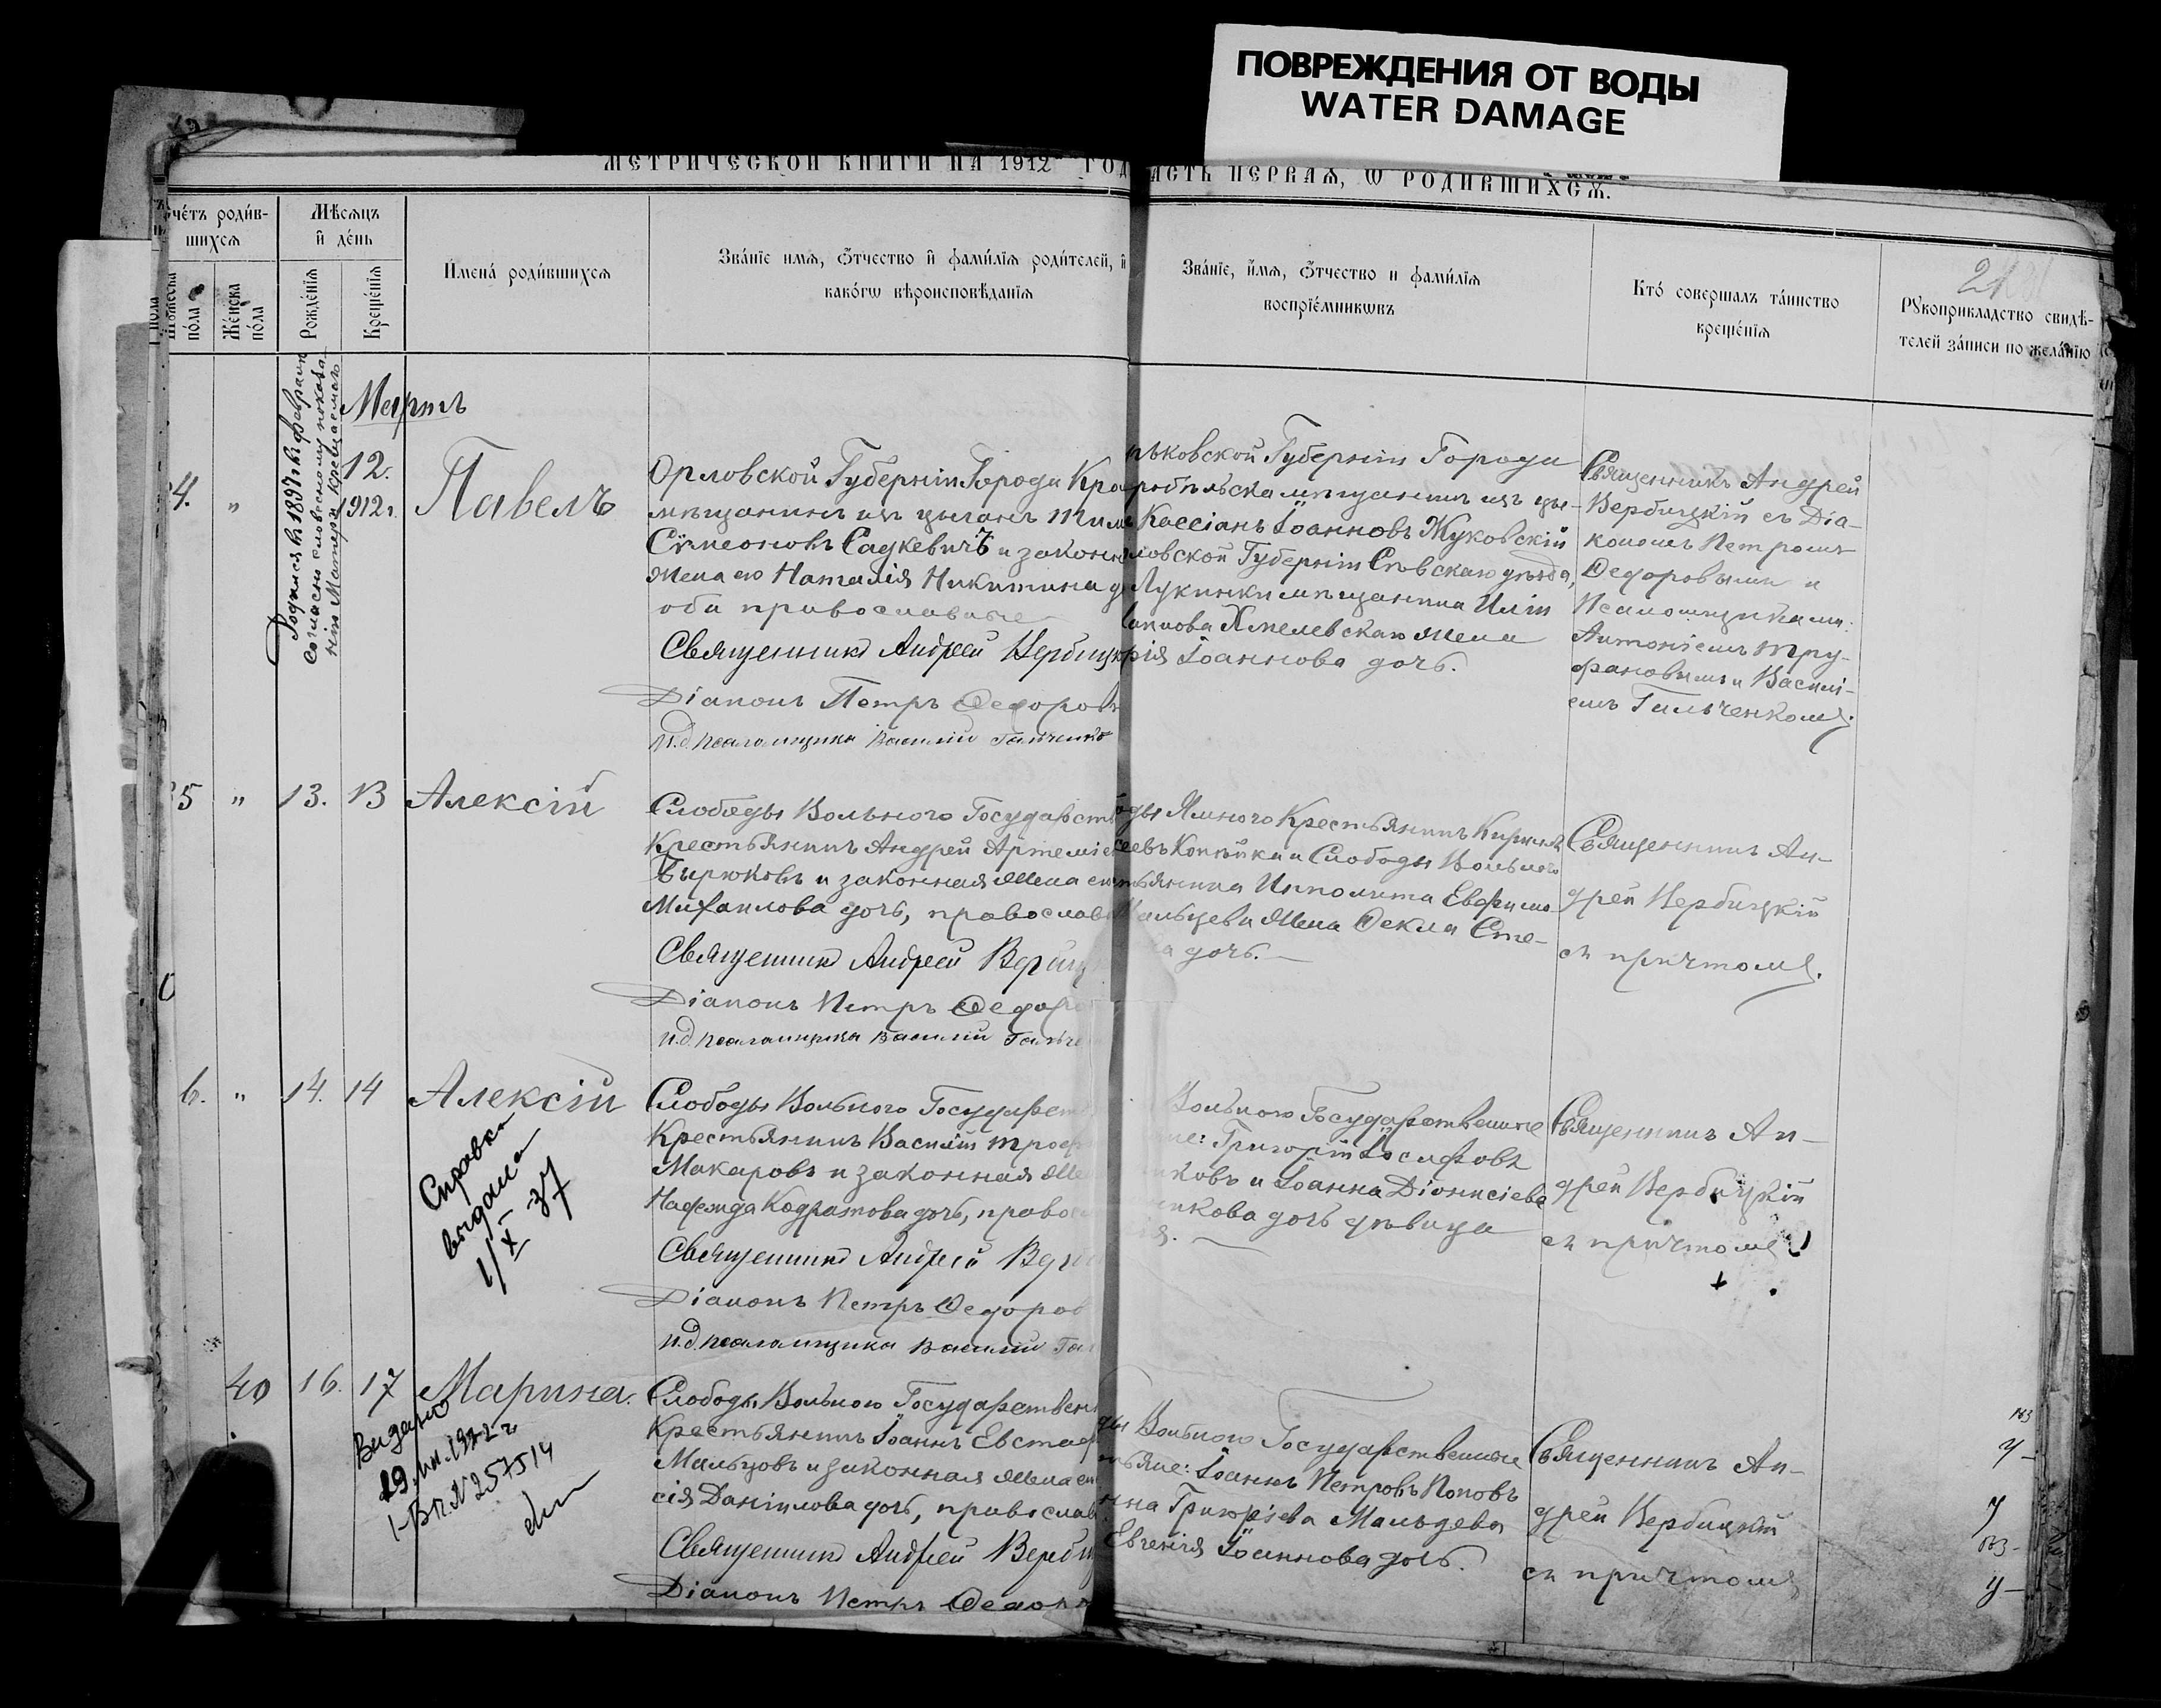 ПОВРЕЖДЕНИЯ ОТ ВОДЫ
WATER DAMAGE
МЕТРИЧЕСКОЙ КНИГИ НА 1912 ГОД
АСТЬ ПЕРВАЯ, Ѡ РОДИВШИХСЯ.
Счетъ родив-
шихся
Мѣсяцъ
и день
Имена родившихся
Званіе имя, отчество и фамилія родителей, и
какогѡ вѣроисповѣданія
Званіе, имя, отчество и фамилія
воспріемниковъ
Кто совершалъ таинство
крещенія
Рукоприкладство свидѣ-
телей записи по желанію
Мужеска
пола
Женска
пола
Рожденія
Крещенія
Мартъ
Родился въ 1897 г. февраля
согласно словесному показа-
нію Матери крещаемаго
4.
"
12.
1912 г.
Павелъ
Орловской Губерніи Города Кро
мѣщанинъ изъ цыганъ Тим
Сѵмеоновъ Садкевичъ и законн
жена его Наталія Никитина д
оба православные
Священникъ Андрей Вербицк
Діаконъ Петръ Ѳедоров
И.д. псаломщика Василій Гальченко
ьковской Губерніи Города
робѣльска мѣщанинъ изъ цы-
Кассіанъ Іоанновъ Жуковскій
ловской Губерніи Сѣвскаго уѣзда,
Лукинки мѣщанина Иліи
Хмелевскаго жена
рія Іоаннова дочь.
Священникъ Андрей
Вербицкій съ Діа-
кономъ Петромъ
Ѳедоровымъ и
Псаломщиками:
Антоніемъ Тру-
фановымъ и Василі-
емъ Гальченкомъ.
5
"
13.
13
Алексій
Слободы Вольного Государств
Крестьянинъ Андрей Артеміе
Бирюковъ и законная жена ег
Михаилова дочь, православ
Священникъ Андрей Верби
Діаконъ Петръ Ѳедоро
И.д. псаломщика Василій Гальче
оды Ямного Крестьянинъ Кириллъ
сеевъ Копѣйка и Слободы Вольного
тьянина Ипполита Евфимо-
Мальцева жена Ѳекла Сте-
ва дочь.
Священникъ Ан-
дрей Вербицкій
съ причтомъ.
6.
"
14.
14
Алексій
Справка
выдана
1/X 37
Слободы Вольного Государств
Крестьянинъ Василій Троф
Макаровъ и законная же
Надежда Кодратова дочь, право
Священникъ Андрей Верб
Діаконъ Петръ Ѳедоров
И.д. псаломщика Василій Гал
Вольного Государственные
не: Григорій Іосифовъ
иковъ и Іоанна Діонисіева
икова дочь дѣвица
Священникъ Ан-
дрей Вербицкій
съ причтомъ
40
16.
17
Марина.
Видано
I-БП № 257514
Слободы Вольного Государствен
Крестьянинъ Іоаннъ Евстаф
Мальцовъ и законная жена ег
сія Даніилова дочь, православ
Священникъ Андрей Верби
Діаконъ Петръ Ѳедоро
ды Вольного Государственные
тьяне: Іоаннъ Петровъ Поповъ
нна Григорьева Мальцева
Евгенія Іоаннова дочь.
Священникъ Ан-
дрей Вербицкій
съ причтомъ